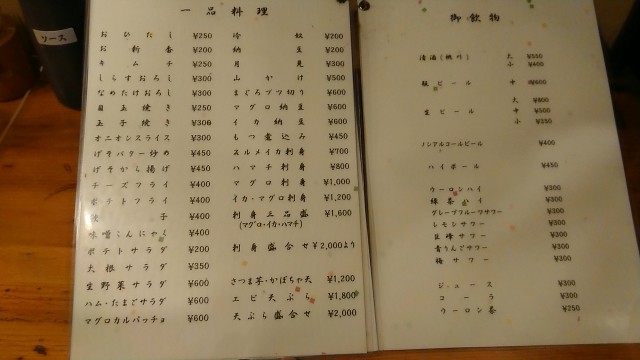 ソース
一品料理
おひたし ¥250
お新香 ¥200
キムチ ¥250
しらすおろし ¥300
なめたけおろし ¥300
目玉焼き ¥250
玉子焼き ¥300
オニオンスライス ¥300
げそバター炒め ¥450
げそから揚げ ¥450
チーズフライ ¥400
ポテトフライ ¥400
餃子 ¥400
味噌こんにゃく ¥400
ポテトサラダ ¥200
大根サラダ ¥350
生野菜サラダ ¥600
ハム・たまごサラダ ¥600
マグロカルパッチョ ¥600
冷奴 ¥200
納豆 ¥200
月見 ¥300
山かけ ¥500
まぐろブツ切り ¥600
マグロ納豆 ¥600
イカ納豆 ¥600
もつ煮込み ¥450
スルメイカ刺身 ¥700
ハマチ刺身 ¥800
マグロ刺身 ¥1,000
イカ・マグロ刺身 ¥1,200
刺身三品盛 ¥1,600
(マグロ・イカ・ハマチ)
刺身盛合せ ¥2,000より
さつま芋・かぼちゃ天 ¥1,200
エビ天ぷら ¥1,800
天ぷら盛合せ ¥2,000
御飲物
清酒(燗の) 大 ¥550
小 ¥400
瓶ビール 中 ¥600
大 ¥800
生ビール 中 ¥500
小 ¥350
ノンアルコールビール ¥400
ハイボール ¥450
ウーロンハイ ¥300
緑茶ハイ ¥300
グレープフルーツサワー ¥300
レモンサワー ¥300
巨峰サワー ¥300
青りんごサワー ¥300
梅サワー ¥300
ジュース ¥300
コーラ ¥300
ウーロン茶 ¥250